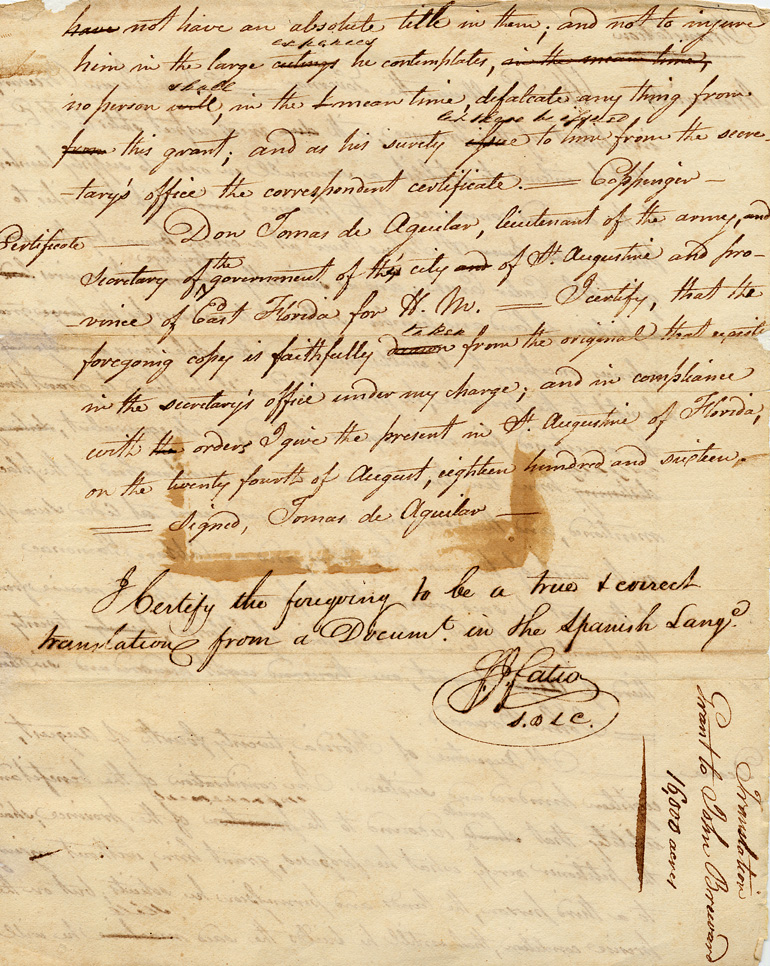 have not have an absolute title in them; and not to injure
expences
him in the large cutings he contemplates, in the mean time,
shall
no person will, in the mean time, defalcate any thing from
let there be issued
from this grant; and as his surety issue to him from the secre-
-tary's office the correspondent certificate. — Coppinger —
Certificate — Don Tomas de Aguilar, lieutenant of the army, and
the
secretary of government of this city and of St. Augustine and pro-
-vince of East Florida for H. M. — I certify, that the
taken
foregoing copy is faithfully drawn from the original that exists
in the secretary's office under my charge; and in compliance
with the orders I give the present in St. Augustine of Florida,
on the twenty fourth of August, eighteen hundred and sixteen. —
— Signed, Tomas de Aguilar —
I Certify the foregoing to be a true & correct
translation from a Documt. in the Spanish Lange.
S.B.L.C.
Translation
Grant to John Broward
16,000 acres